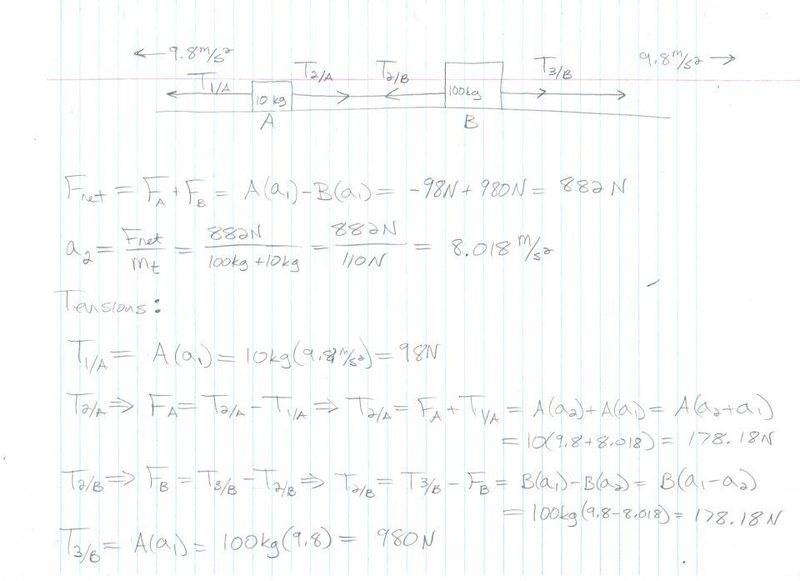 ← 9.8 m/s² 9.8 m/s² →
T₁/A T₂/A T₂/B T₃/B
10 kg 100kg
A B
Fnet = F_A + F_B = A(a₁) - B(a₁) = -98N + 980N = 882 N
a₂ = Fnet/mt = 882N/100kg+10kg = 882N/110N = 8.018 m/s²
Tensions:
T₁/A = A(a₁) = 10kg(9.8 m/s²) = 98N
T₂/A ⇒ F_A = T₂/A - T₁/A ⇒ T₂/A = F_A + T₁/A = A(a₂)+A(a₁) = A(a₂+a₁)
= 10(9.8+8.018) = 178.18N
T₂/B ⇒ F_B = T₃/B - T₂/B ⇒ T₂/B = T₃/B - F_B = B(a₁)-B(a₂) = B(a₁-a₂)
= 100kg(9.8-8.018) = 178.18N
T₃/B = A(a₁) = 100kg(9.8) = 980N